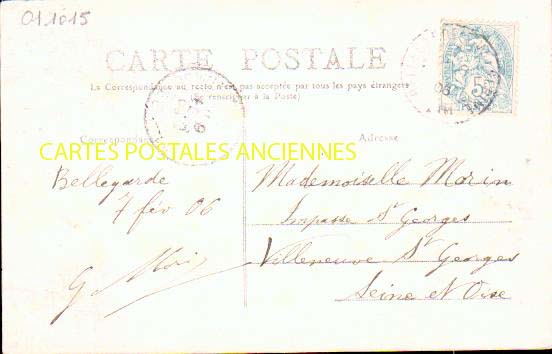 011015
CARTE POSTALE
La Correspondance au recto n'est pas acceptée par tous les pays étrangers
(Se renseigner à la Poste)
Correspondance
Adresse
CARTES POSTALES ANCIENNES
Bellegarde
7 fév 06
Mademoiselle Morin
Impasse St Georges
Villeneuve St Georges
Seine et Oise
G.
06
5